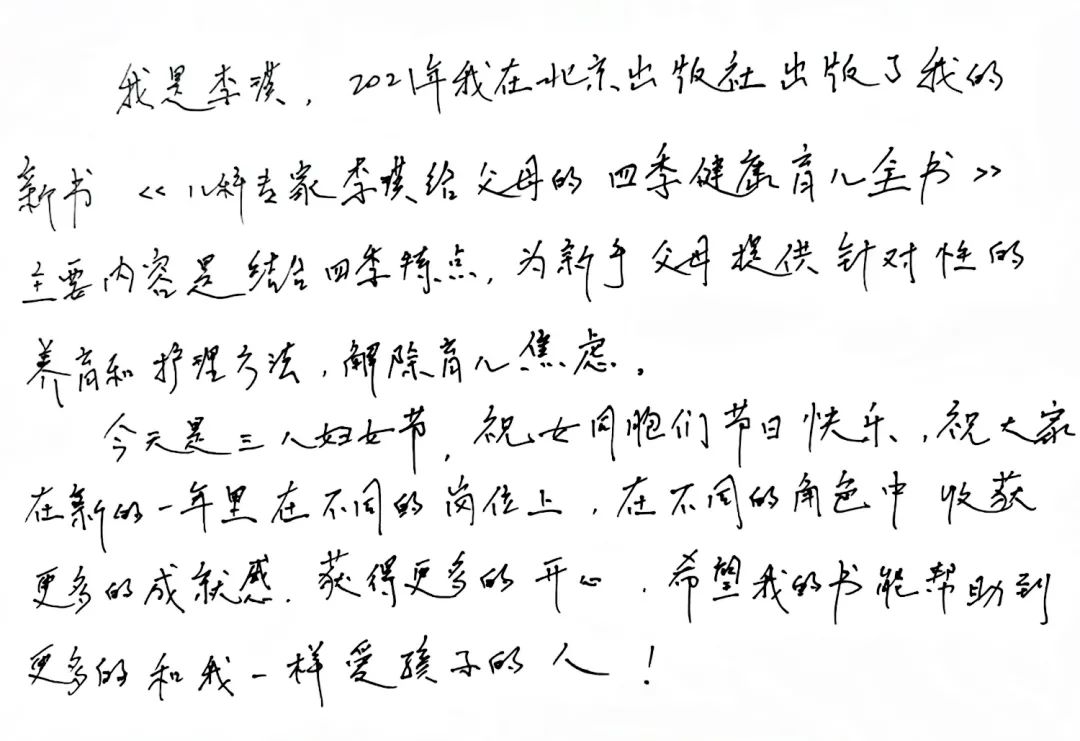 我是李瑛，2021年我在北京出版社出版了我的
新书《儿科专家李瑛给父母的四季健康育儿全书》
主要内容是结合四季特点，为新手父母提供针对性的
养育和护理方法，解除育儿焦虑。
今天是三八妇女节，祝女同胞们节日快乐，祝大家
在新的一年里在不同的岗位上，在不同的角色中收获
更多的成就感，获得更多的开心，希望我的书能帮助到
更多的和我一样爱孩子的人！